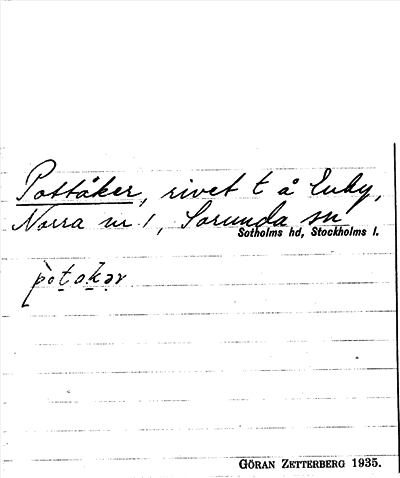 Pottåker, rivet t å Enby,
Norra nr 1, Sorunda sn
Sotholms hd, Stockholms l.
pòt̠ok̠ər
GÖRAN ZETTERBERG 1935.